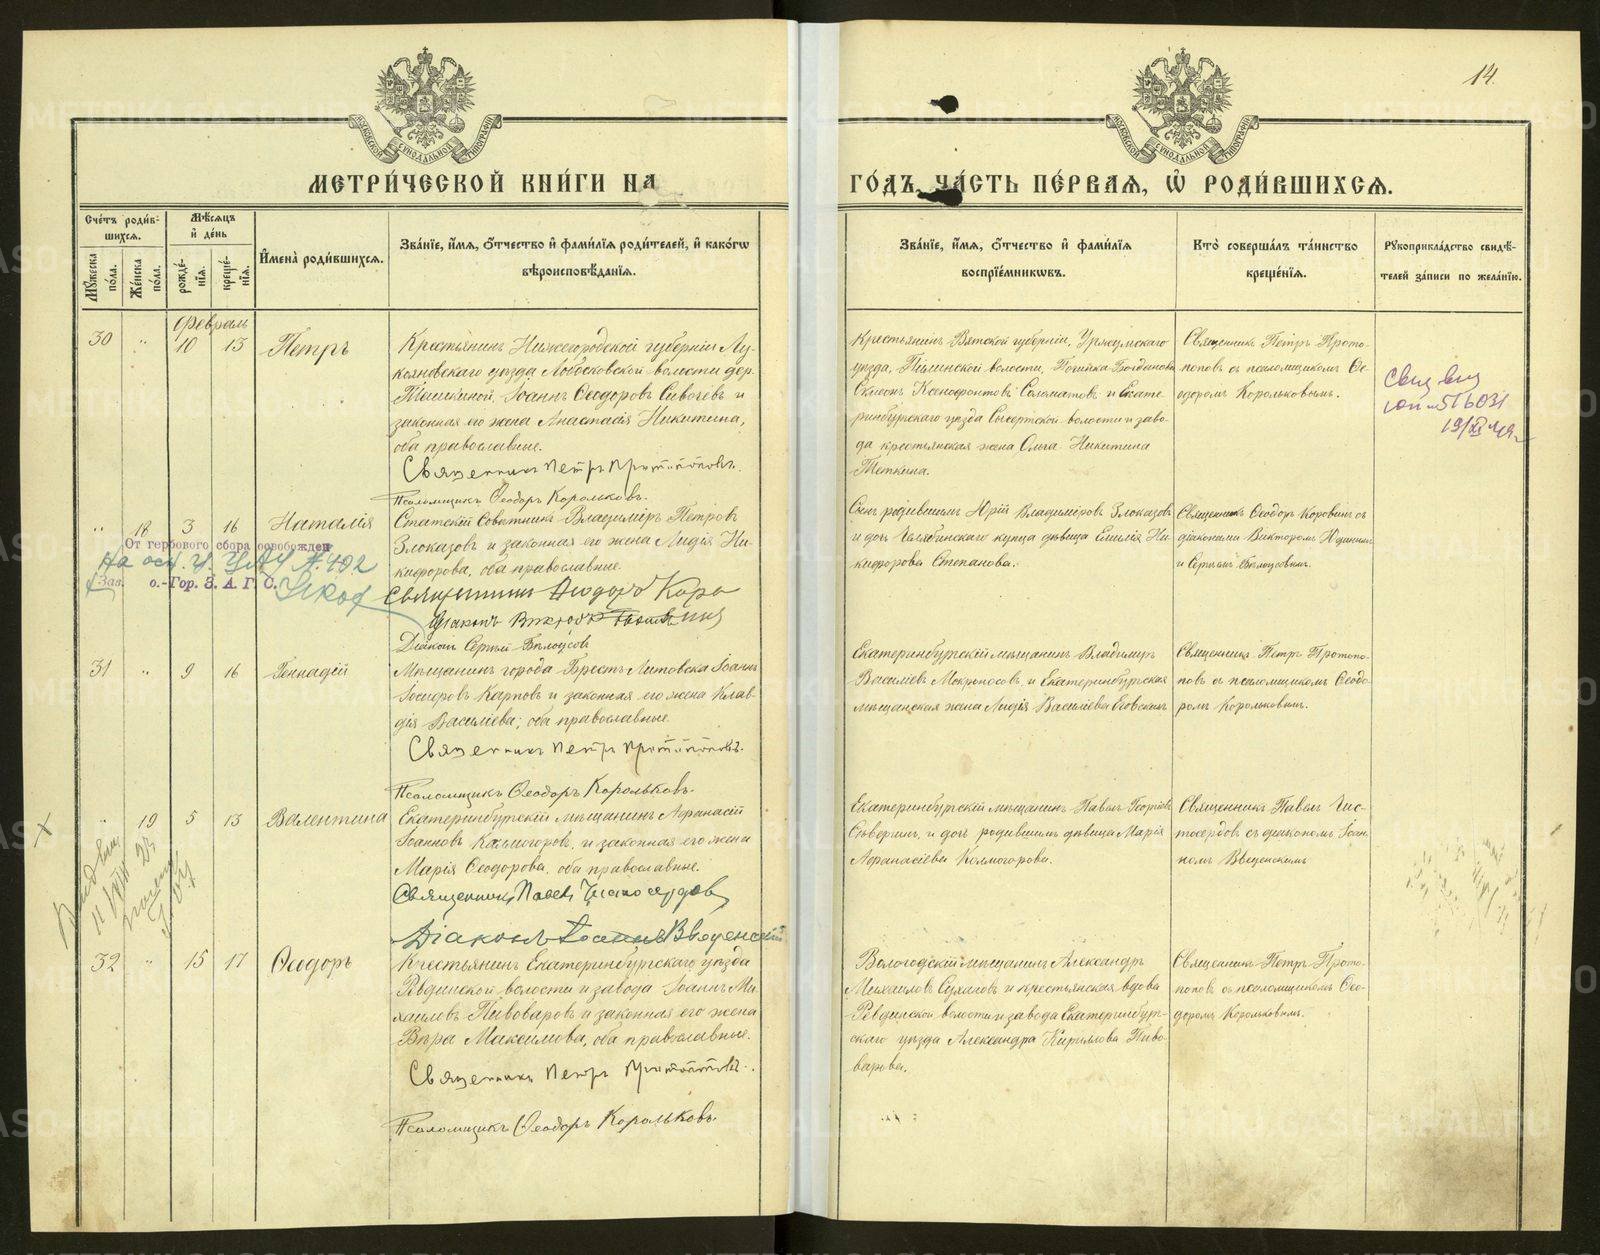 14.
МЕТРИЧЕСКОЙ КНИГИ НА ГОДЪ, ЧАСТЬ ПЕРВАЯ, Ѡ РОДИВШИХСЯ.
Счетъ родившихся.
Мужеска пола.
Женска пола.
Мѣсяцъ и день
рожденія.
крещенія.
Имена родившихся.
Званіе, имя, отчество и фамилія родителей, и какогѡ
вѣроисповѣданія.
Званіе, имя, отчество и фамилія
воспріемникѡвъ.
Кто совершалъ таинство
крещенія.
Рукоприкладство свидѣ-
телей записи по желанію.
Февраль
30 " 10 13 Петръ
Крестьянинъ Нижегородской губерніи Лу-
кояновскаго уѣзда Лобасковской волости дер.
Пашкиной, Іоаннъ Ѳеодоровъ Сивачевъ и
законная его жена Анастасія Никитина,
оба православные.
Священникъ Петръ Протопоповъ.
Псаломщикъ Ѳеодоръ Корольковъ.
Крестьянинъ Вятской губерніи, Уржумскаго
уѣзда, волости, Починка Богданова
Симеонъ Ксенофонтовъ Соломатовъ и Екате-
ринбургскаго уѣзда Сысертской волости и заво-
да крестьянская жена Ольга Никитина
Теткина.
Священникъ Петръ Прото-
поповъ съ псаломщикомъ Ѳе-
одоромъ Корольковымъ.
516031
" 18 3 16 Наталія
Статскій Совѣтникъ Владиміръ Петровъ
Злоказовъ и законная его жена Лидія Ни-
кифорова, оба православные.
Діаконъ Сергій Бѣлоусовъ
От гербового сбора освобожден
на осн. 402
Зав. о.-Гор. З. А. Г. С.
Сынъ родившимъ Юрій Владиміровъ Злоказовъ
и дочь Челябинскаго купца дѣвица Емилія Ни-
кифорова Степанова.
Священникъ Ѳеодоръ Коровинъ съ
діаконами Викторомъ Юдинымъ
и Сергіемъ Бѣлоусовымъ.
31 " 9 16 Геннадій
Мѣщанинъ города Брестъ-Литовска Іоаннъ
Іосифовъ Карповъ и законная его жена Клав-
дія Василіева; оба православные.
Священникъ Петръ Протопоповъ.
Псаломщикъ Ѳеодоръ Корольковъ.
Екатеринбургскій мѣщанинъ Владиміръ
Василіевъ Мокроносовъ и Екатеринбургская
мѣщанская жена Лидія Василіева
Священникъ Петръ Протопо-
повъ съ псаломщикомъ Ѳеодо-
ромъ Корольковымъ.
" 19 5 13 Валентина
Екатеринбургскій мѣщанинъ Афанасій
Іоанновъ Калмогоровъ и законная его жена
Марія Ѳеодорова, оба православные.
Священникъ Павелъ Чистосердовъ
Діаконъ Іоаннъ Введенскій
Екатеринбургскій мѣщанинъ Павелъ Георгіевъ
Сѣверинъ, и дочь родившимъ дѣвица Марія
Афанасіева Колмогорова.
Священникъ Павелъ Чис-
тосердовъ съ діакономъ Іоан-
номъ Введенскимъ
32 " 15 17 Ѳеодоръ
Крестьянинъ Екатеринбургскаго уѣзда
Ревдинской волости и завода Іоаннъ Ми-
хаиловъ Пивоваровъ и законная его жена
Вѣра Максимова, оба православные.
Священникъ Петръ Протопоповъ.
Псаломщикъ Ѳеодоръ Корольковъ.
Вологодскій мѣщанинъ Александръ
Михаиловъ Сухаговъ и крестьянская вдова
Ревдинской волости и завода Екатеринбург-
скаго уѣзда Александра Кириллова Пиво-
варова.
Священникъ Петръ Прото-
поповъ съ псаломщикомъ Ѳео-
доромъ Корольковымъ.